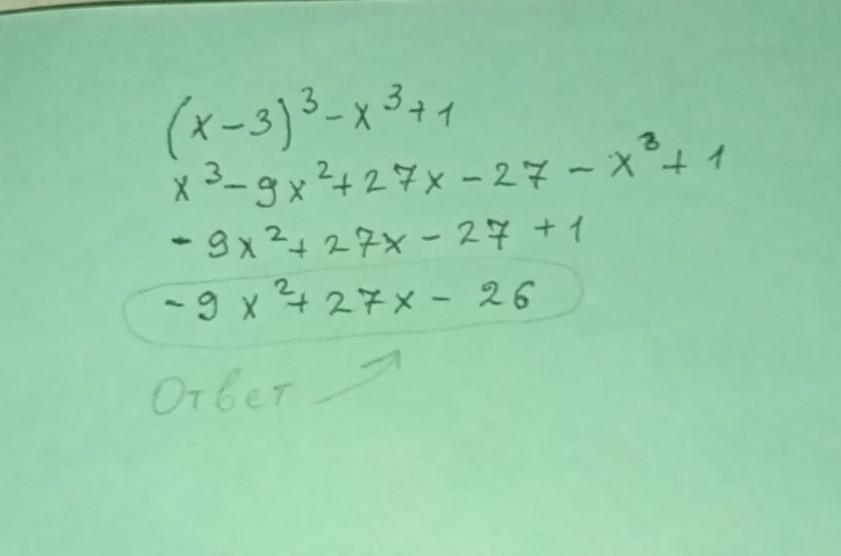 (x-3)³-x³+1
x³-9x²+27x-27-x³+1
-9x²+27x-27+1
-9x²+27x-26
Ответ